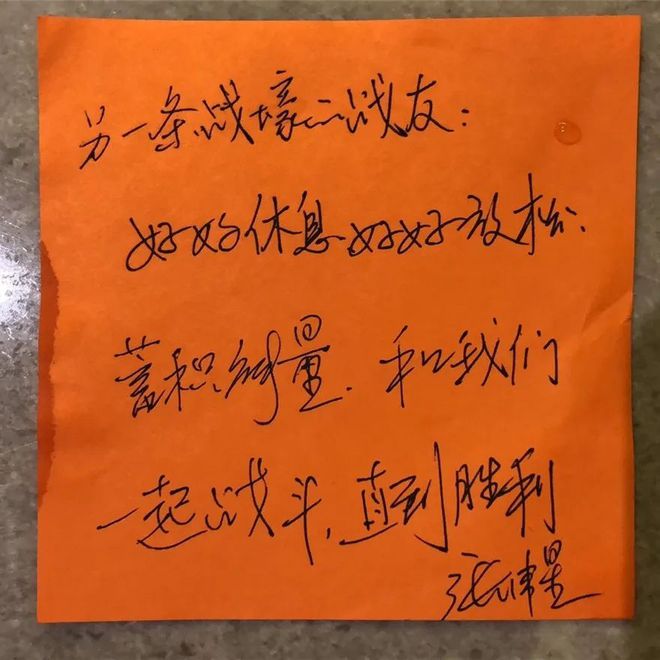 另一条战壕的战友：
好好休息好好放松、
蓄积能量、和我们
一起战斗,直到胜利
张伟星